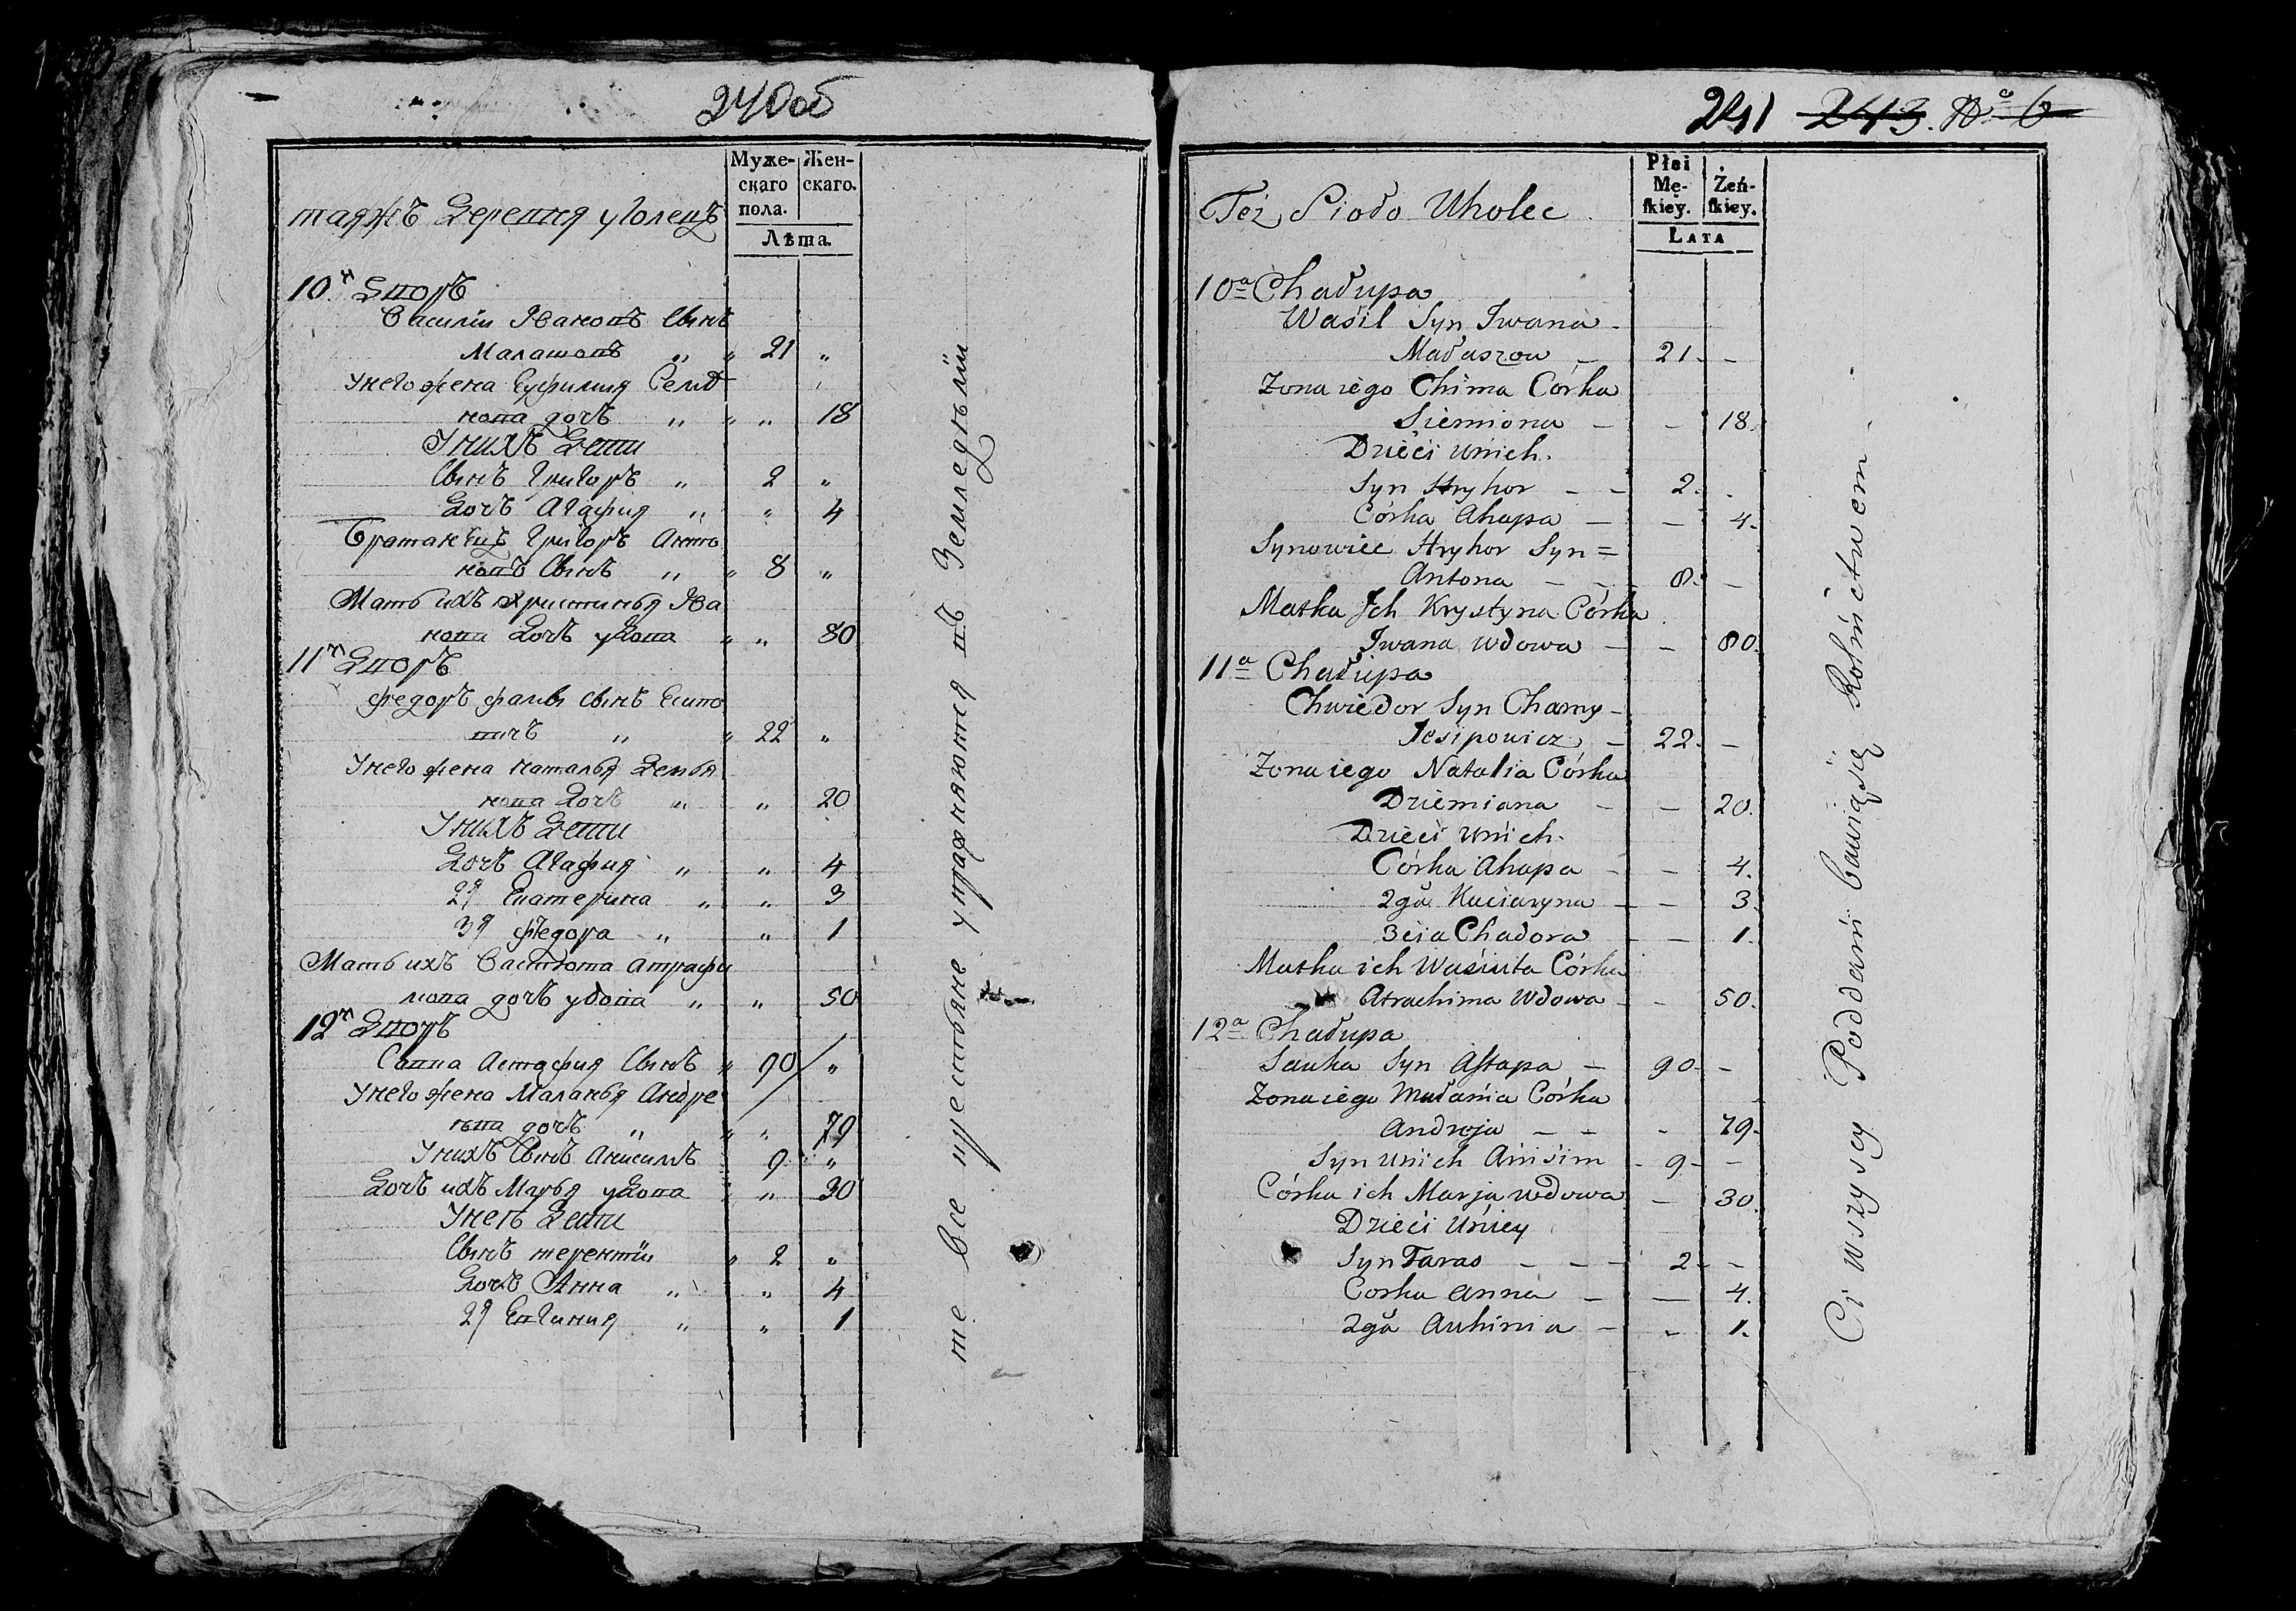 240об
Муже-
скаго
пола.
Жен-
скаго.
Лѣта.
таяжъ Деревня уголецъ
10й Дворъ
Василии Ивановъ Сынъ
Малашовъ " " 21 "
У него жена Еуфимия Семе
нова дочь " " " 18
У нихъ Дети
Сынъ Григоръ " 2 "
Дочь Агафия " " 4
Братанецъ Григоръ Анто
новъ Сынъ " " 8 "
Мать ихъ христинья Ива
нова Дочь удова " " 80
11й Дворъ
федоръ фамы Сынъ Есипо
вичъ " " 22 "
У него жена наталья Демья
нова Дочь " " 20
У нихъ Дети
Дочь Агафия " " 4
2я Екатерина " " 3
3я федора " " 1
Мать ихъ Васюта атрафи
мова дочь удова " " 50
12й Дворъ
Савка Астафия Сынъ " 90 "
У него жена Маланья Андре
ева дочь " " " 79
У нихъ Сынъ Анисимъ 9 "
Дочь ихъ Марья удова " " 30
У неѣ Дети
Сынъ терентіи " 2 "
Дочь Анна " " 4
2я Евгиния " " 1
те Все крестьяне упражняются въ Земледѣліи
241 243. No 6
Płci
Mę-
ſkiey.
Żeń-
ſkiey.
LATA
Też Sioło Uholec
10a Chałupa
Wasil Syn Iwana -
Małaszow - 21 - -
Zona iego Chima Córka
Siemiona - - 18.
Dzieci unich.
Syn Hryhor - - 2. .
Córka Ahapa - - 4.
Synowiec Hryhor Syn =
Antona - - 8. -
Matka Ich Krystyna Córka
Iwana wdowa - - 80.
11a Chałupa
Chwiedor Syn Chamy -
Jesipowicz - 22. -
Zona iego Natalia Córka
Dziemiana - - 20.
Dzieci unich.
Córka Ahapa - - 4.
2ga Kaciaryna - - 3.
3cia Chadora - - 1.
Matka ich Wasiuta Córka
Atrachima Wdowa - - 50.
12a Chałupa
Sauka Syn Aſtapa - 90. -
Zona iego Małania Córka
Andreja - - - 79.
Syn unich Anisim - 9 - -
Córka ich Marja wdowa - 30.
Dzieci Uniey
Syn Taras - - - 2 - -
Corka Anna - — 4.
2ga Auhinia - - 1.
Ci wszyscy Poddani bawią się Rolnictwem.